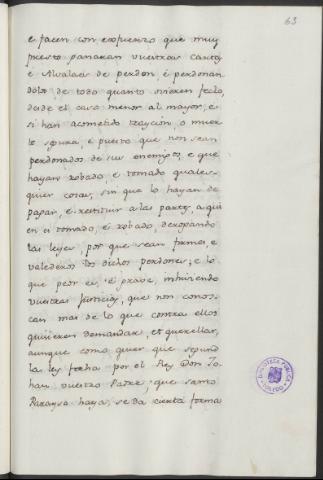 63
e facen con esfuerzo que muy
presto ganaran vuestras cartas
e Alvalaes de perdon, é perdonan
dolos de todo quanto ovieren fecho,
desde el caso menor al mayor, e
si han acometido traycion, o muer
te segura, e puesto que non sean
perdonados de sus enemigos, e que
hayan robado, e tomado quales
quier cosas, sin que lo hayan de
pagar, é restituir a las partes, a qui
en es tomado, e robado, derogando
las leyes, por que sean firmes, e
valederos los dichos perdones; e lo
que peor es, é grave, inhiviendo
vuestras Justicias, que non conos-
can mas de lo que contra ellos
quisieren demandar, et querellar,
aunque como quier que segund
la ley fecha por el Rey Don Jo-
han vuestro Padre, que santo
Parayso haya, se da cierta forma
BIBLIOTECA PUBLICA
TOLEDO